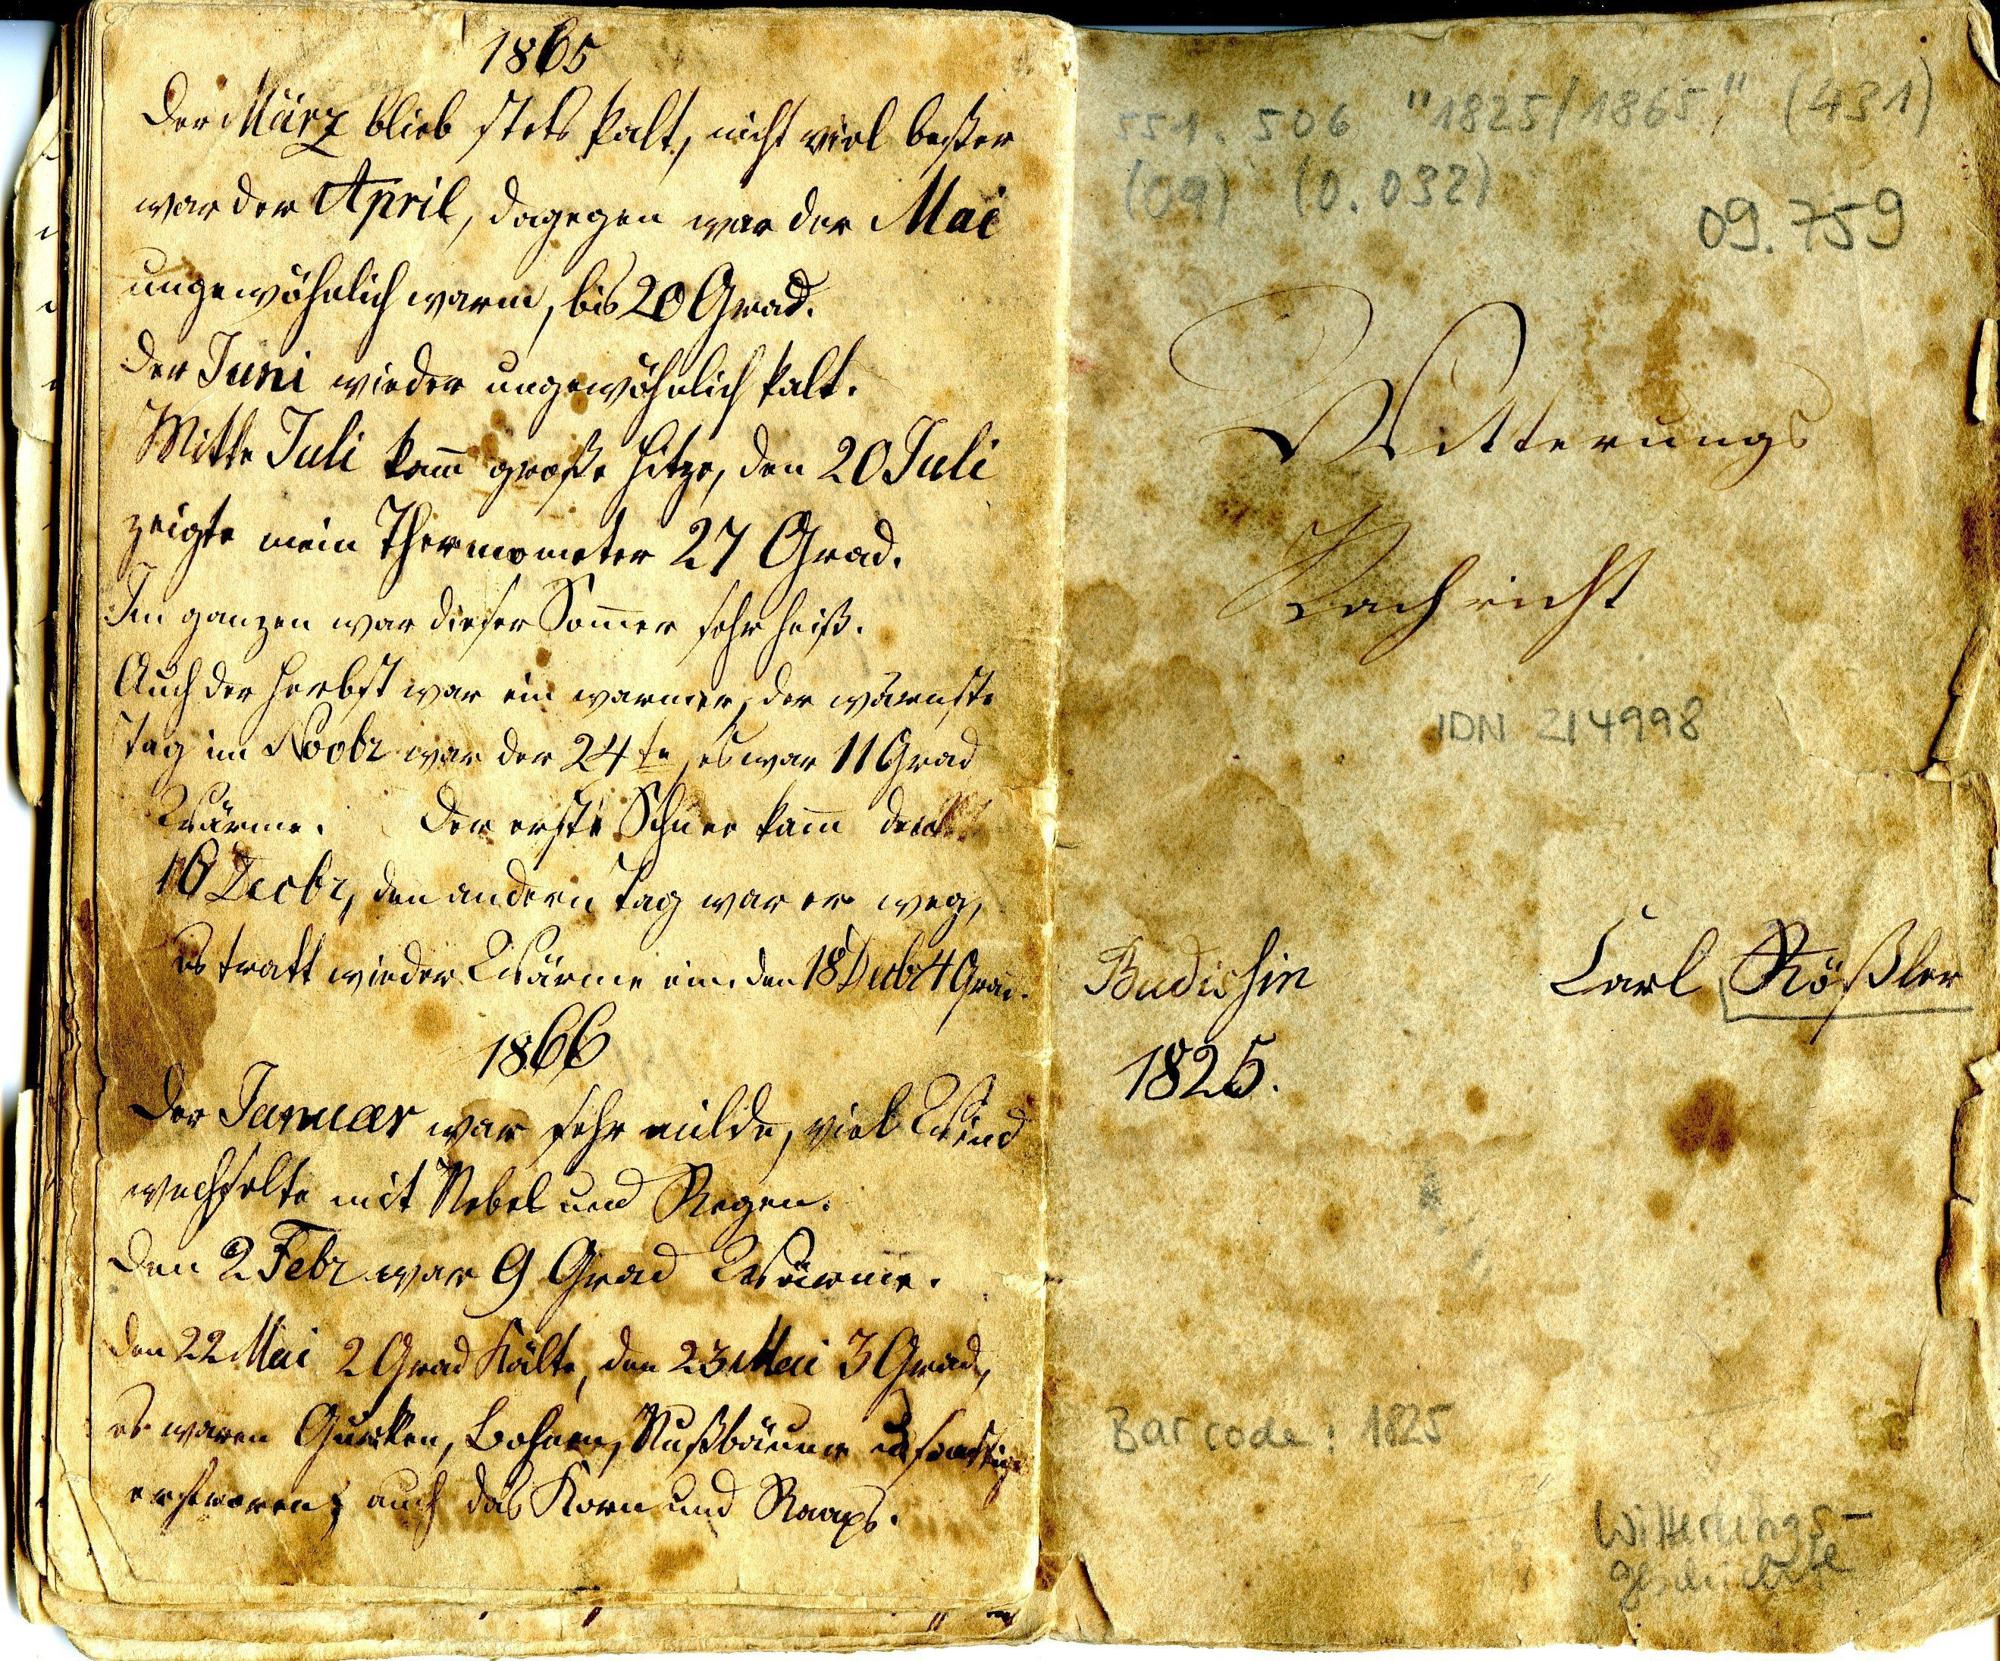 1865
Der März blieb stets kalt, nicht viel beßer
war der April, dagegen war der Mai
ungewöhnlich warm, bis 20 Grad.
Der Juni wieder ungewöhnlich kalt.
Mitte Juli kam̅ große Hitze, den 20 Juli
zeigte mein Thermometer 27 Grad.
Im ganzen war dieser Som̅er sehr heiß.
Auch der Herbst war ein warmer, der wärmste
Tag im Novbr war der 24te, es war 11 Grad
Wärme. Der erste Schnee kam̅ den
16 Decbr, den andern Tag war er weg,
es tratt wieder Wärme ein. den 18 Decbr 4 Grad.
1866
Der Januar war sehr milde, viel Wind
wechselte mit Nebel und Regen.
Den 2 Febr war 9 Grad Wärme.
Den 22 Mai 2 Grad Kälte, den 23 Mai 3 Grad,
es waren Gurken, Bohnen, Nußbäume
erfroren, auch das Korn und Raaps.
551.506 "1825/1865" (431)
(09) (0.032)
09.759
Witterungs
Nachricht
IDN 214998
Budissin Carl Rößler
1825.
Barcode: 1825
Witterungs-
geschichte